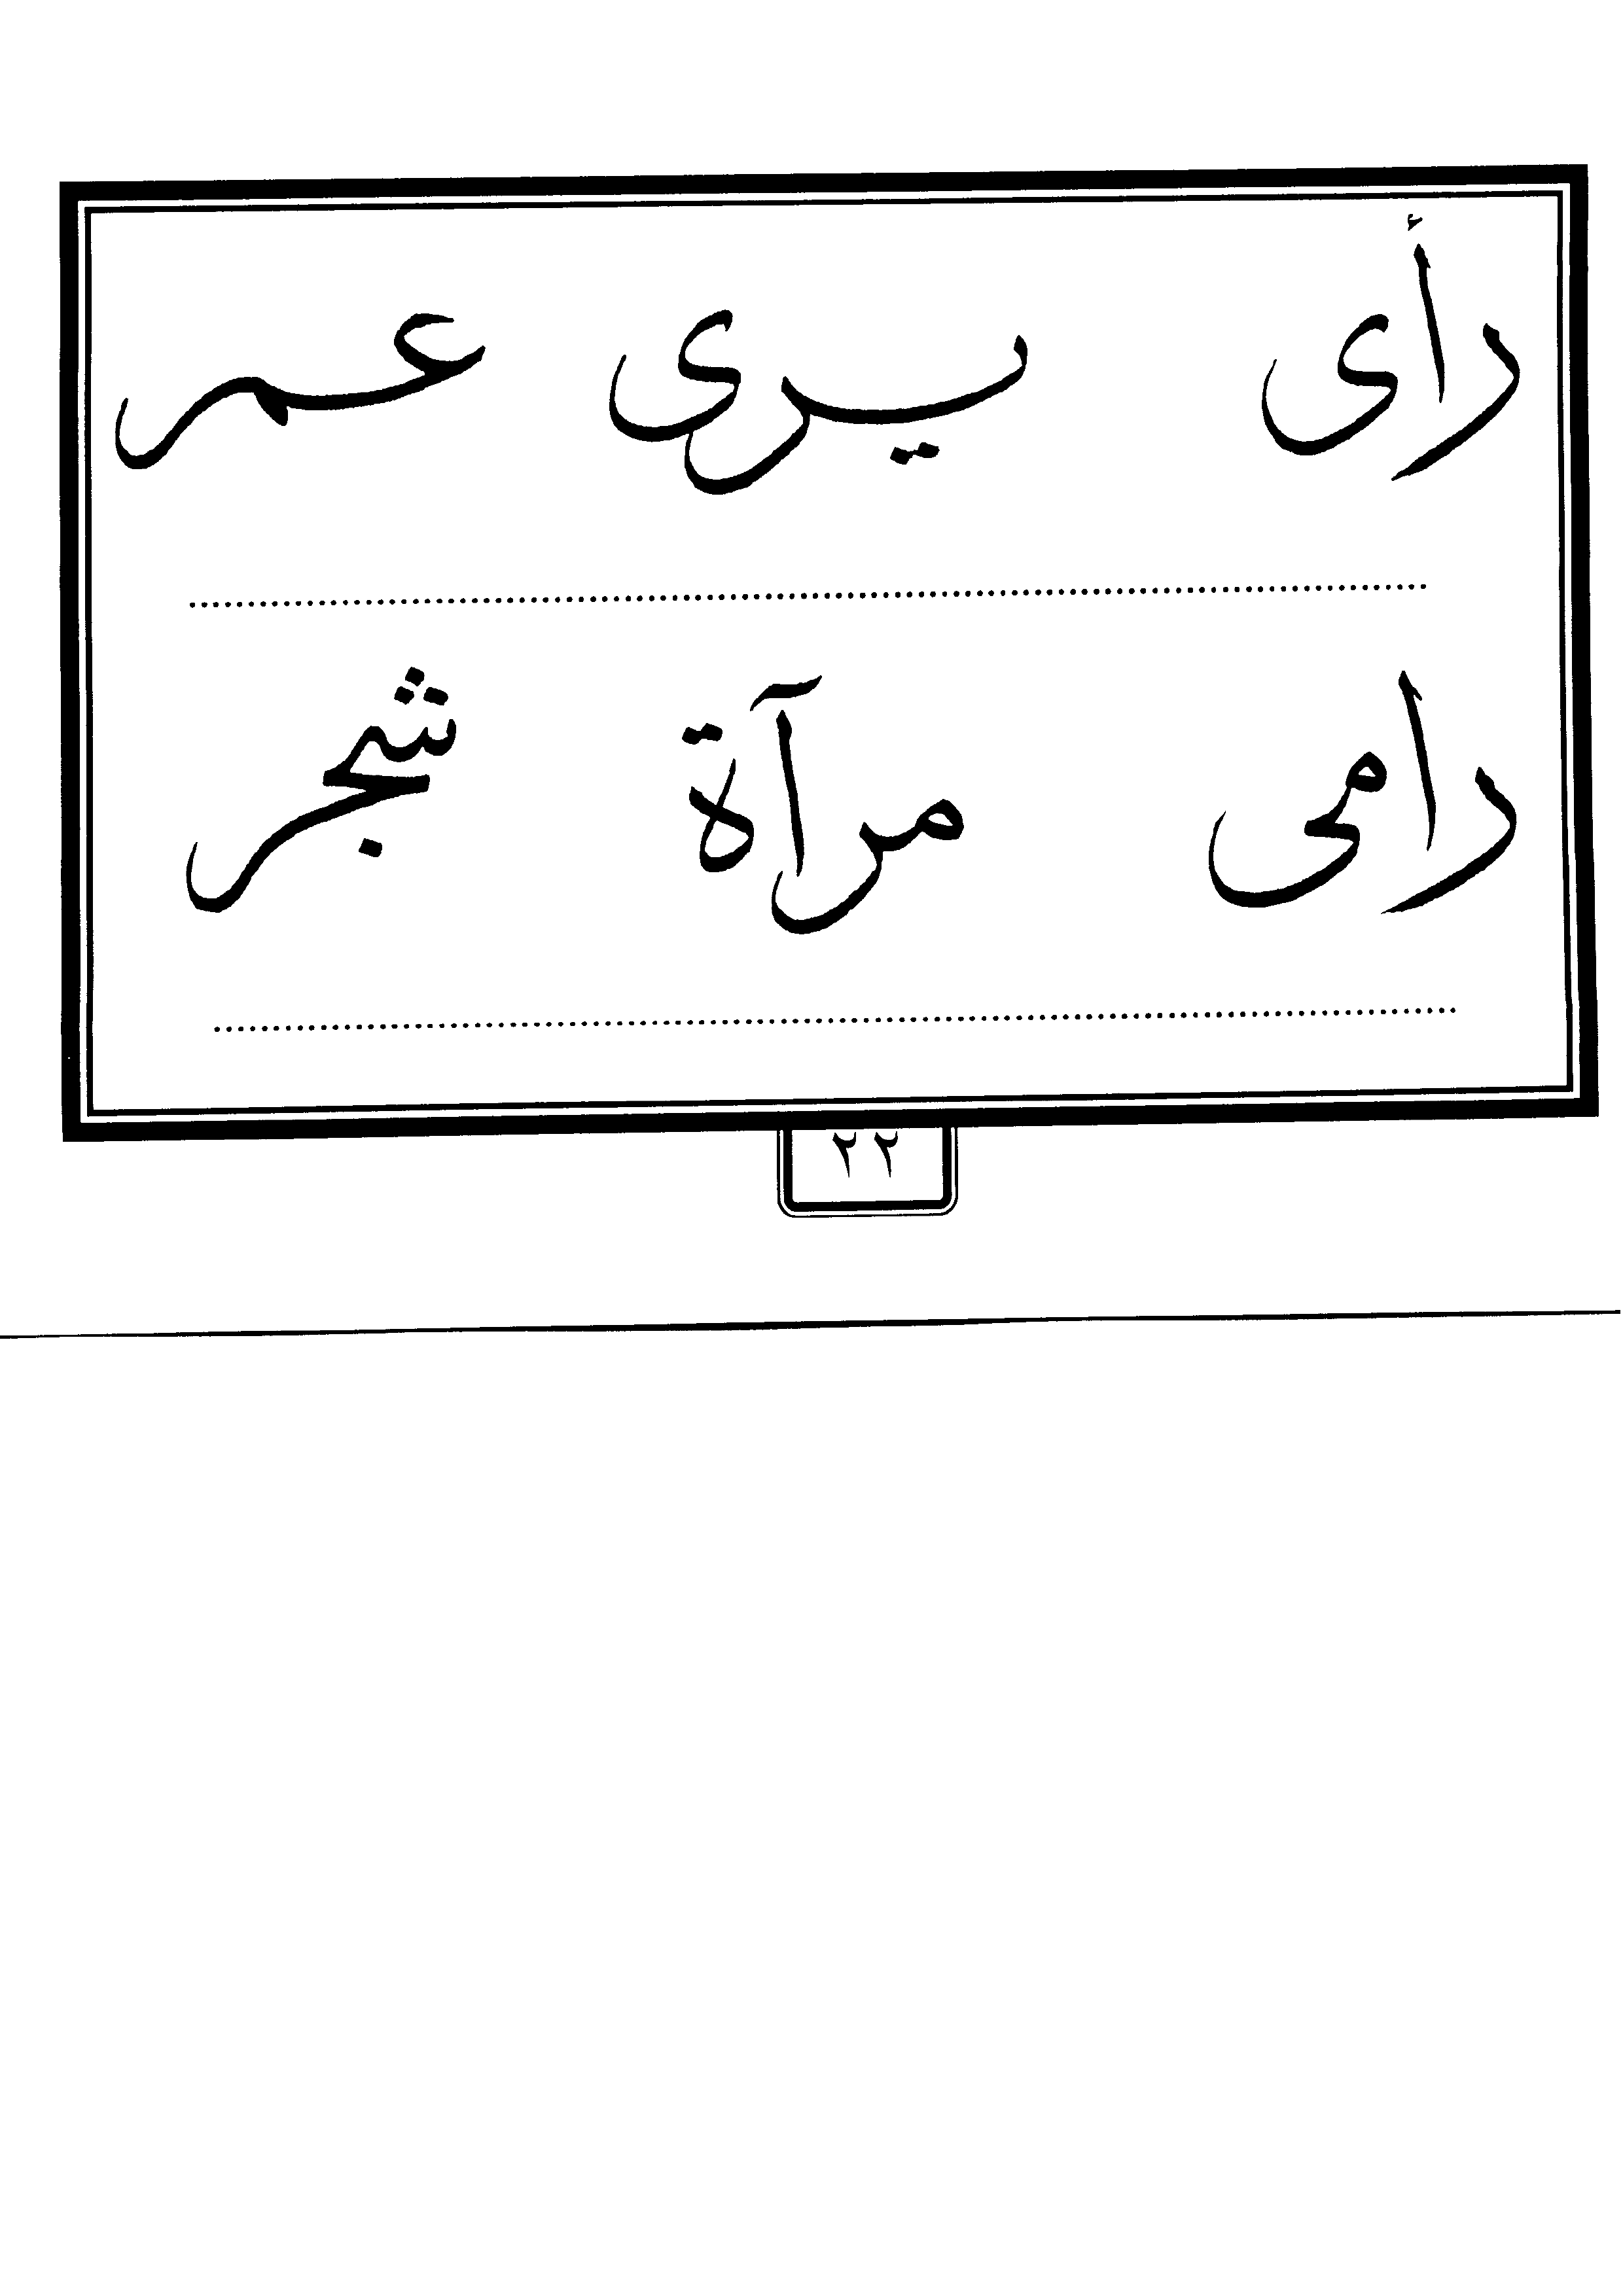 رأى يرى عمر
رامى مرآة شجر
٢٢